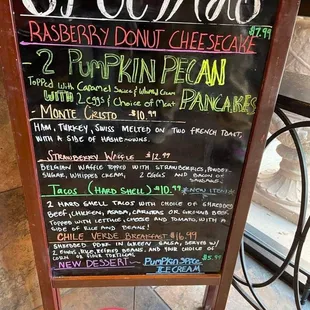 SPECIALS
RASBERRY DONUT CHEESECAKE $7.99
- 2 PUMPKIN PECAN
TOPPED WITH CARAMEL SAUCE & WHIPPED CREAM PANCAKES
WITH 2 EGGS & CHOICE OF MEAT
- MONTE CRISTO $10.99
HAM, TURKEY, SWISS MELTED ON TWO FRENCH TOAST,
WITH A SIDE OF HASHBROWNS.
STRAWBERRY WAFFLE $12.99
BELGIAN WAFFLE TOPPED WITH STRAWBERRIES, POWDER
SUGAR, WHIPPED CREAM, 2 EGGS AND BACON OR
SAUSAGE
TACOS (HARD SHELL) $10.99 NEW ITEM
2 HARD SHELL TACOS WITH CHOICE OF SHREDDED
BEEF, CHICKEN, ASADA, CARNITAS OR GROUND BEEF
TOPPED WITH LETTUCE, CHEESE AND TOMATO, WITH A
SIDE OF RICE AND BEANS!
CHILE VERDE BREAKFAST $16.99
SHREDDED PORK IN GREEN SALSA, SERVED W/
2 EGGS, RICE, REFRIED BEANS, AND YOUR CHOICE
OF CORN OR FLOUR TORTILLAS
NEW DESSERT ~ PUMPKIN SPICE $5.99
ICE CREAM